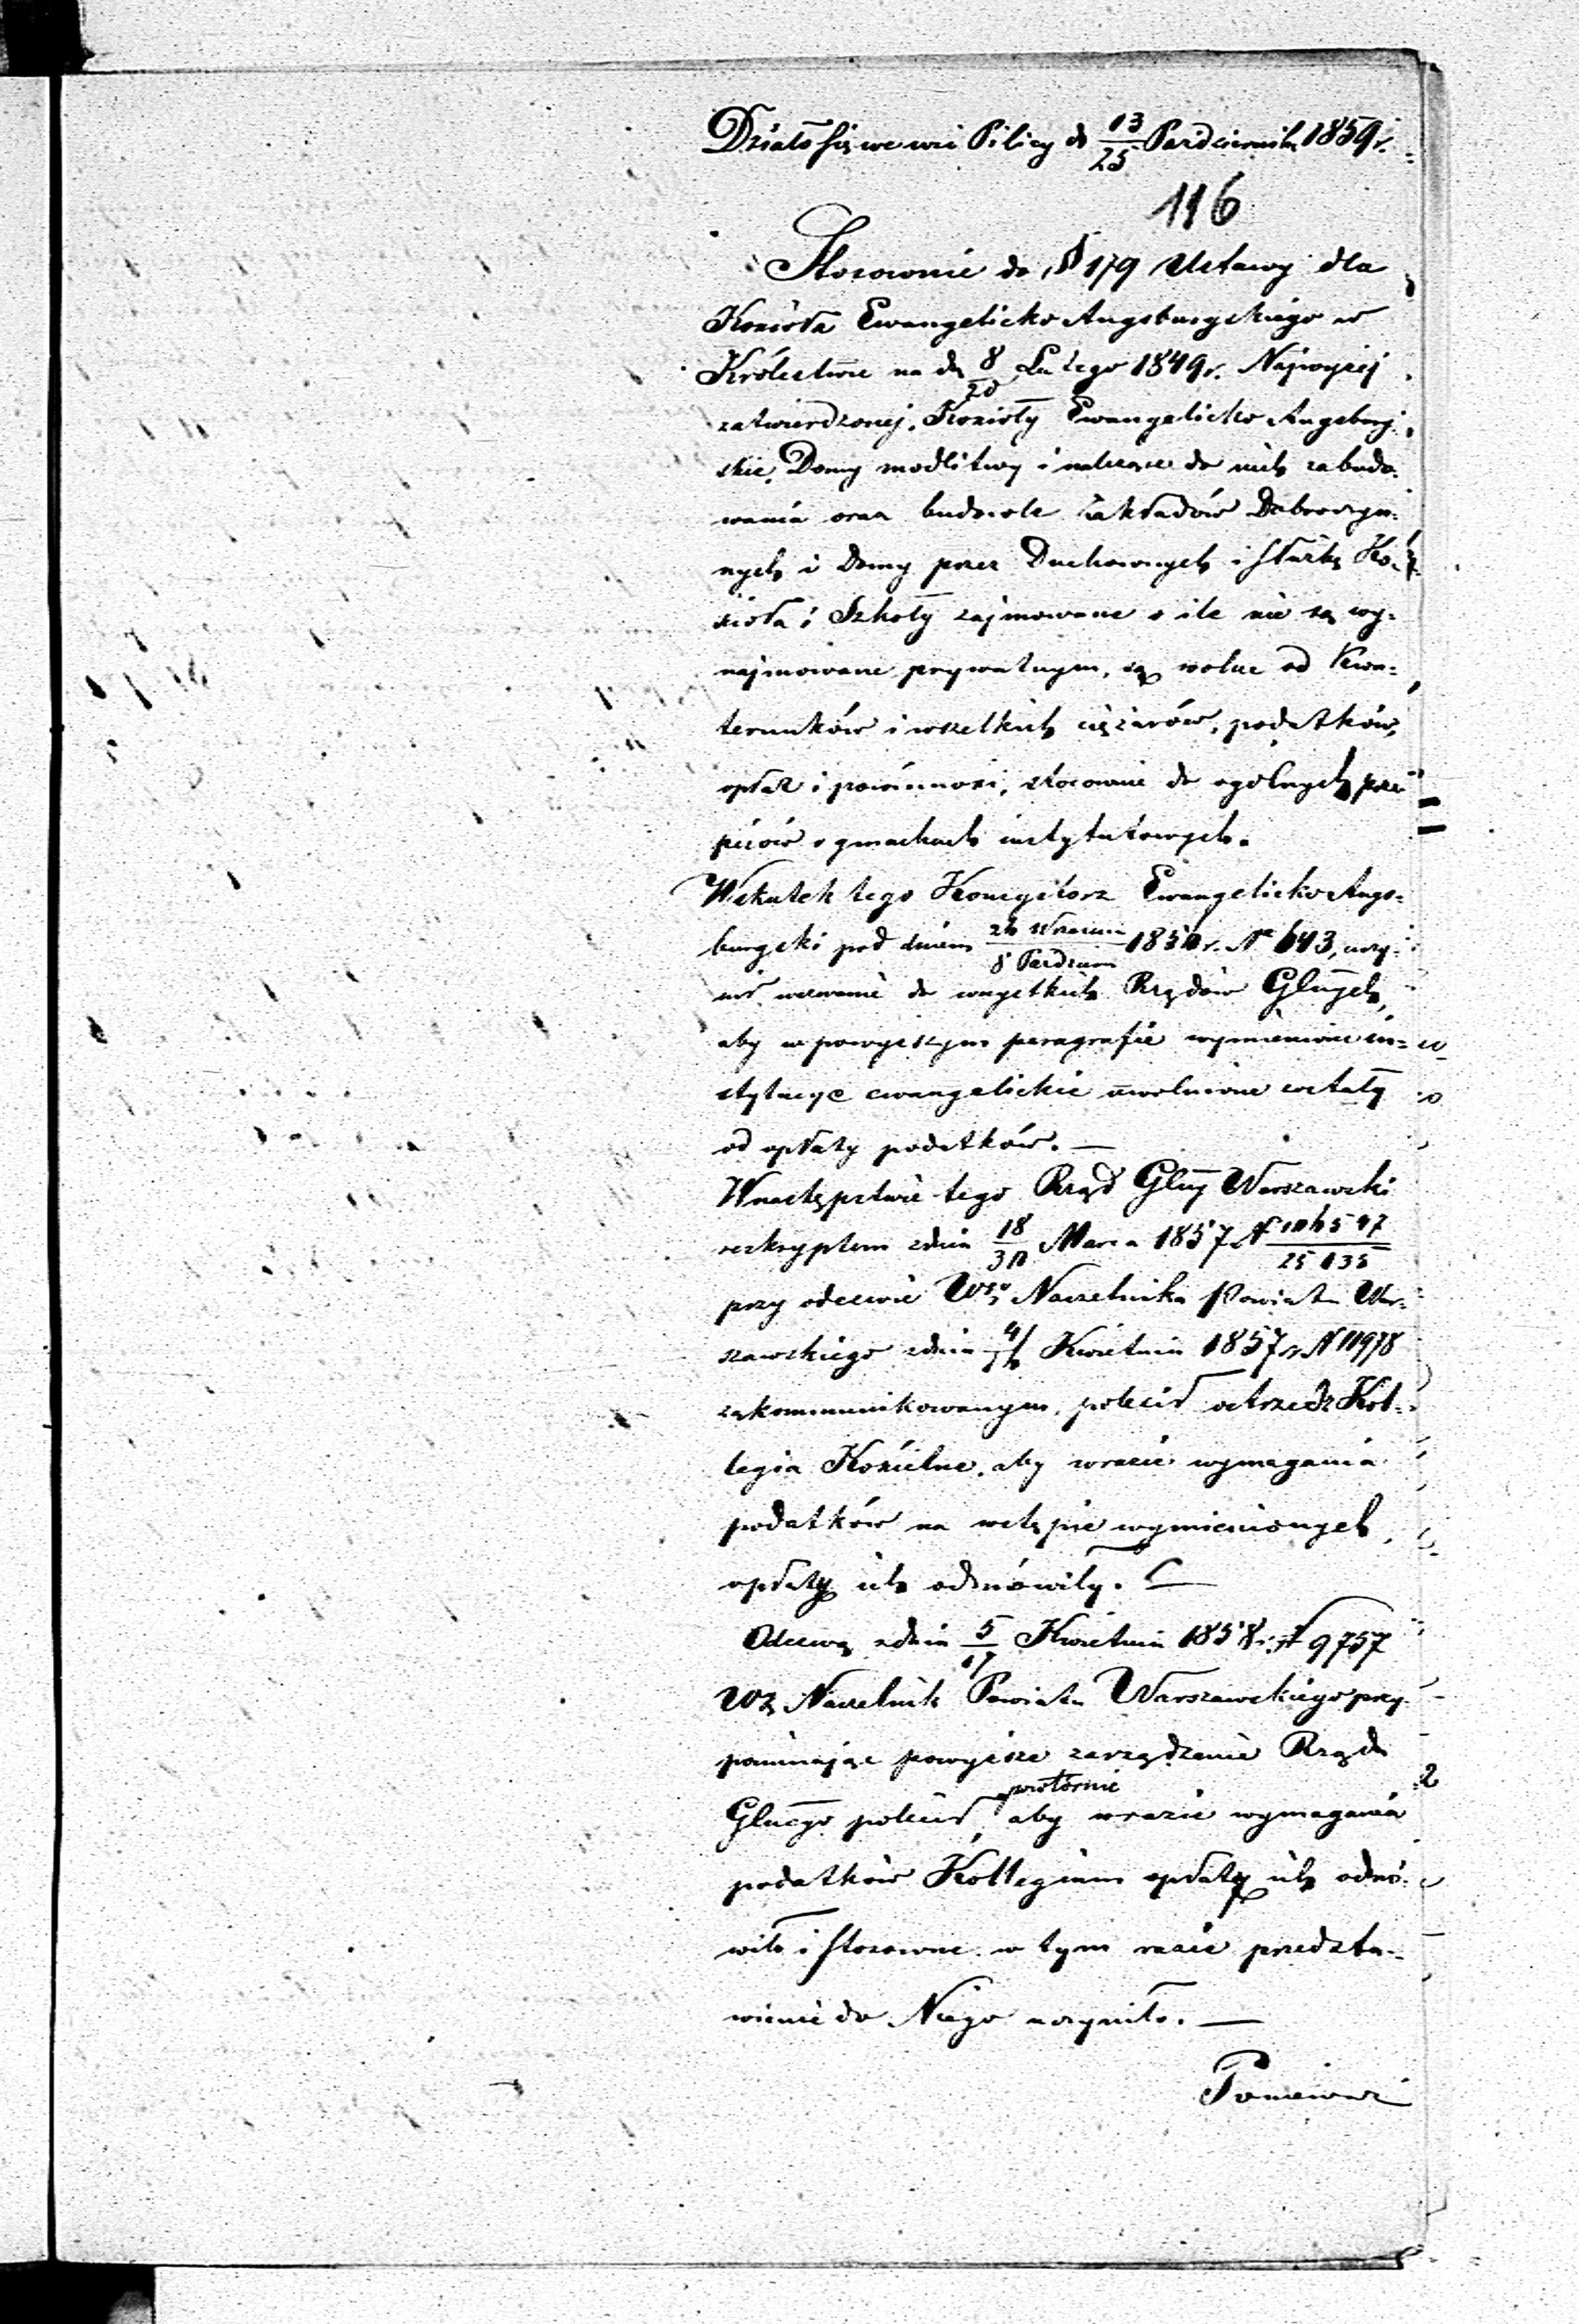 Działo się we wsi Pilicy d. 13/25 Października 1859 r.
116
Stosownie do § 179 Ustawy dla
Kościoła Ewangelicko Augsburgskiego w
Królestwie na dn 8/20 Lutego 1849 r. Najwyżej
zatwierdzonej, Kościoły Ewangelicko Augsburg-
skie, Domy modlitwy i należące do nich zabudo-
wania oraz budowle zakładów Dobroczyn-
nych i Domy przez Duchownych i Służbę Ko-
ścioła i Szkoły zajmowane o ile nie są wy-
najmowane prywatnym, są wolne od Kwa-
terunków i wszelkich ciężarów, podatków,
opłat i powinności, stosownie do ogólnych prze
pisów o gmachach instytutowych.
Wskutek tego Konsystorz Ewangelicko Augs-
burgski pod dniem 26 Wrześni/8 Paździer 1850 r. N 643, uczy-
nił wezwanie do wszystkich Rządów Glnych,
aby w powyższym paragrafie wymienione in-
stytucye ewangelickie uwolnione zostały
od opłaty podatków. —
W następstwie tego Rząd Glny Warszawski
reskryptem z dnia 18/30 Marca 1857 N 106547/25135
przy odezwie Wgo Naczelnika Powiatu War-
szawskiego z dnia 4/16 Kwietnia 1857 r N 11978
zakommunikowanym, polecił ostrzedz Kol-
legia Kościelne, aby w razie wymagania
podatków na wstępie wymienionych,
opłaty ich odmówiły. —
Odezwą z dnia 5/17 Kwietnia 1858 r. N 9757
WJ. Naczelnik Powiatu Warszawskiego przy-
pominając powyższe zarządzenie Rządu
Glnego polecił powtórnie aby w razie wymagania
podatków Kollegium opłaty ich odmó-
wiło i stosowne w tym razie przedsta-
wienie do Niego uczyniło. —
Ponieważ